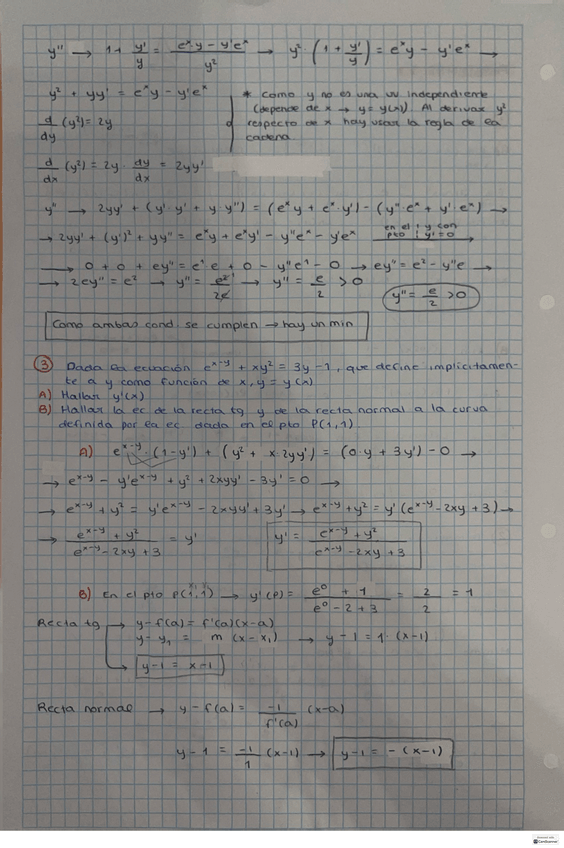 y'' → 1 + y'/y = (eˣ·y − y'eˣ)/y² → y²·(1 + y'/y) = eˣy − y'eˣ →
y² + yy' = eˣy − y'eˣ
* Como y no es una vv independiente
(depende de x → y = y(x)). Al derivar y²
respecto de x hay usar la regla de la
cadena
d/dy (y²) = 2y
d/dx (y²) = 2y · dy/dx = 2yy'
y'' → 2yy' + (y'·y' + y·y'') = (eˣy + eˣ·y') − (y''·eˣ + y'·eˣ) →
→ 2yy' + (y')² + yy'' = eˣy + eˣy' − y''eˣ − y'eˣ en el pto 1 y con y' = 0 →
→ 0 + 0 + ey'' = e¹e + 0 − y''e¹ − 0 → ey'' = e² − y''e →
→ 2ey'' = e² → y'' = e²/2e → y'' = e/2 > 0
y'' = e/2 > 0
Como ambas cond. se cumplen → hay un min
3 Dada la ecuación eˣ⁻ʸ + xy² = 3y − 1, que define implícitamen-
te a y como función de x, y = y(x)
A) Hallar y'(x)
B) Hallar la ec de la recta tg y de la recta normal a la curva
definida por la ec dada en el pto P(1,1).
A) eˣ⁻ʸ·(1 − y') + (y² + x·2yy') = (0·y + 3y') − 0 →
→ eˣ⁻ʸ − y'eˣ⁻ʸ + y² + 2xyy' − 3y' = 0 →
→ eˣ⁻ʸ + y² = y'eˣ⁻ʸ − 2xyy' + 3y' → eˣ⁻ʸ + y² = y'(eˣ⁻ʸ − 2xy + 3) →
→ (eˣ⁻ʸ + y²)/(eˣ⁻ʸ − 2xy + 3) = y' y' = (eˣ⁻ʸ + y²)/(eˣ⁻ʸ − 2xy + 3)
B) En el pto P(1,1) → y'(P) = (e⁰ + 1)/(e⁰ − 2 + 3) = 2/2 = 1
Recta tg → y − f(a) = f'(a)(x − a)
y − y₁ = m (x − x₁) → y − 1 = 1·(x − 1)
y − 1 = x − 1
Recta normal → y − f(a) = −1/f'(a) (x − a)
y − 1 = −1/1 (x − 1) → y − 1 = −(x − 1)
CamScanner